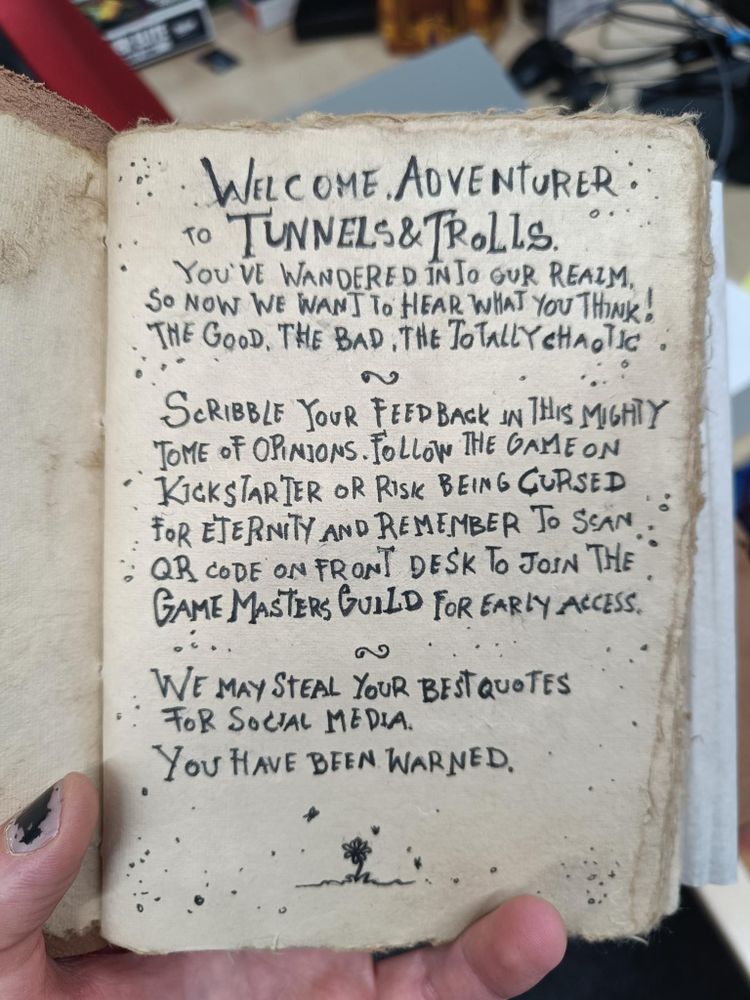 WELCOME, ADVENTURER
TO TUNNELS & TROLLS.
YOU'VE WANDERED INTO OUR REALM,
SO NOW WE WANT TO HEAR WHAT YOU THINK!
THE GOOD, THE BAD, THE TOTALLY CHAOTIC
SCRIBBLE YOUR FEEDBACK IN THIS MIGHTY
TOME OF OPINIONS. FOLLOW THE GAME ON
KICKSTARTER OR RISK BEING CURSED
FOR ETERNITY AND REMEMBER TO SCAN
QR CODE ON FRONT DESK TO JOIN THE
GAME MASTERS GUILD FOR EARLY ACCESS.
WE MAY STEAL YOUR BEST QUOTES
FOR SOCIAL MEDIA.
YOU HAVE BEEN WARNED.